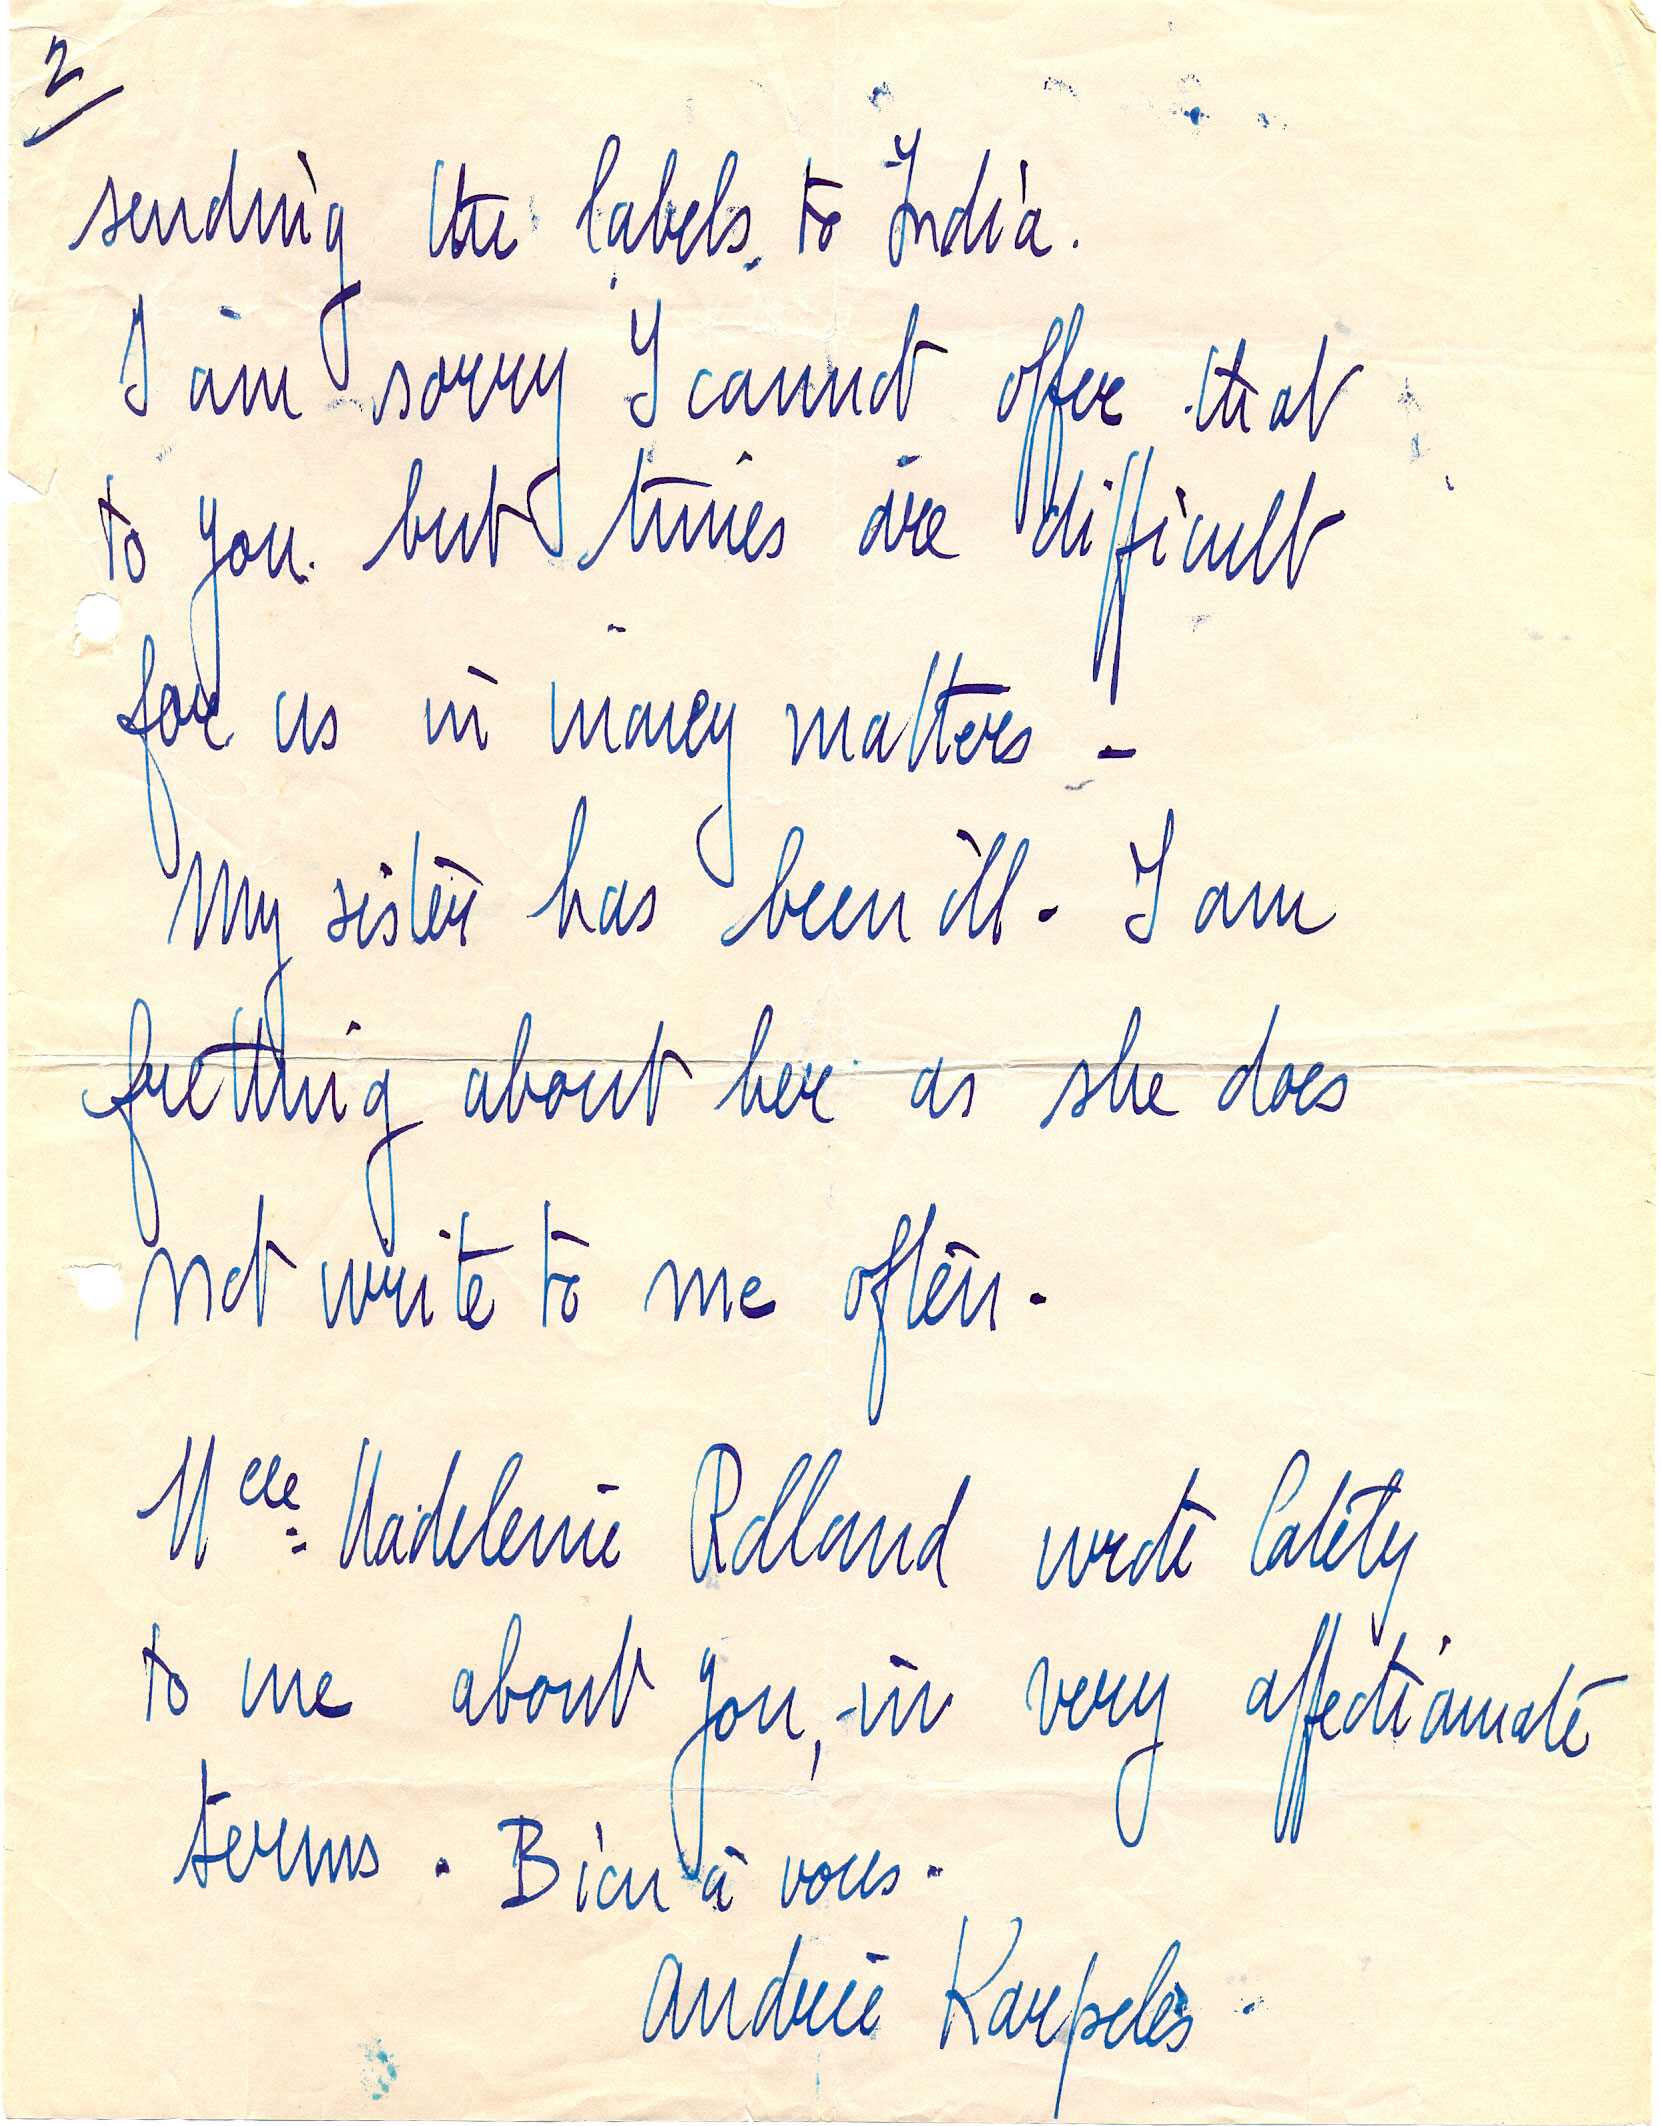 2
sending the labels to India.
I am sorry I cannot offer that
to you. but times are difficult
for us in money matters -
My sister has been ill. I am
fretting about her as she does
not write to me often.
Mlle. Madeleine Rolland wrote lately
to me about you, in very affectionate
terms. Bien à vous.
Andrée Karpelès